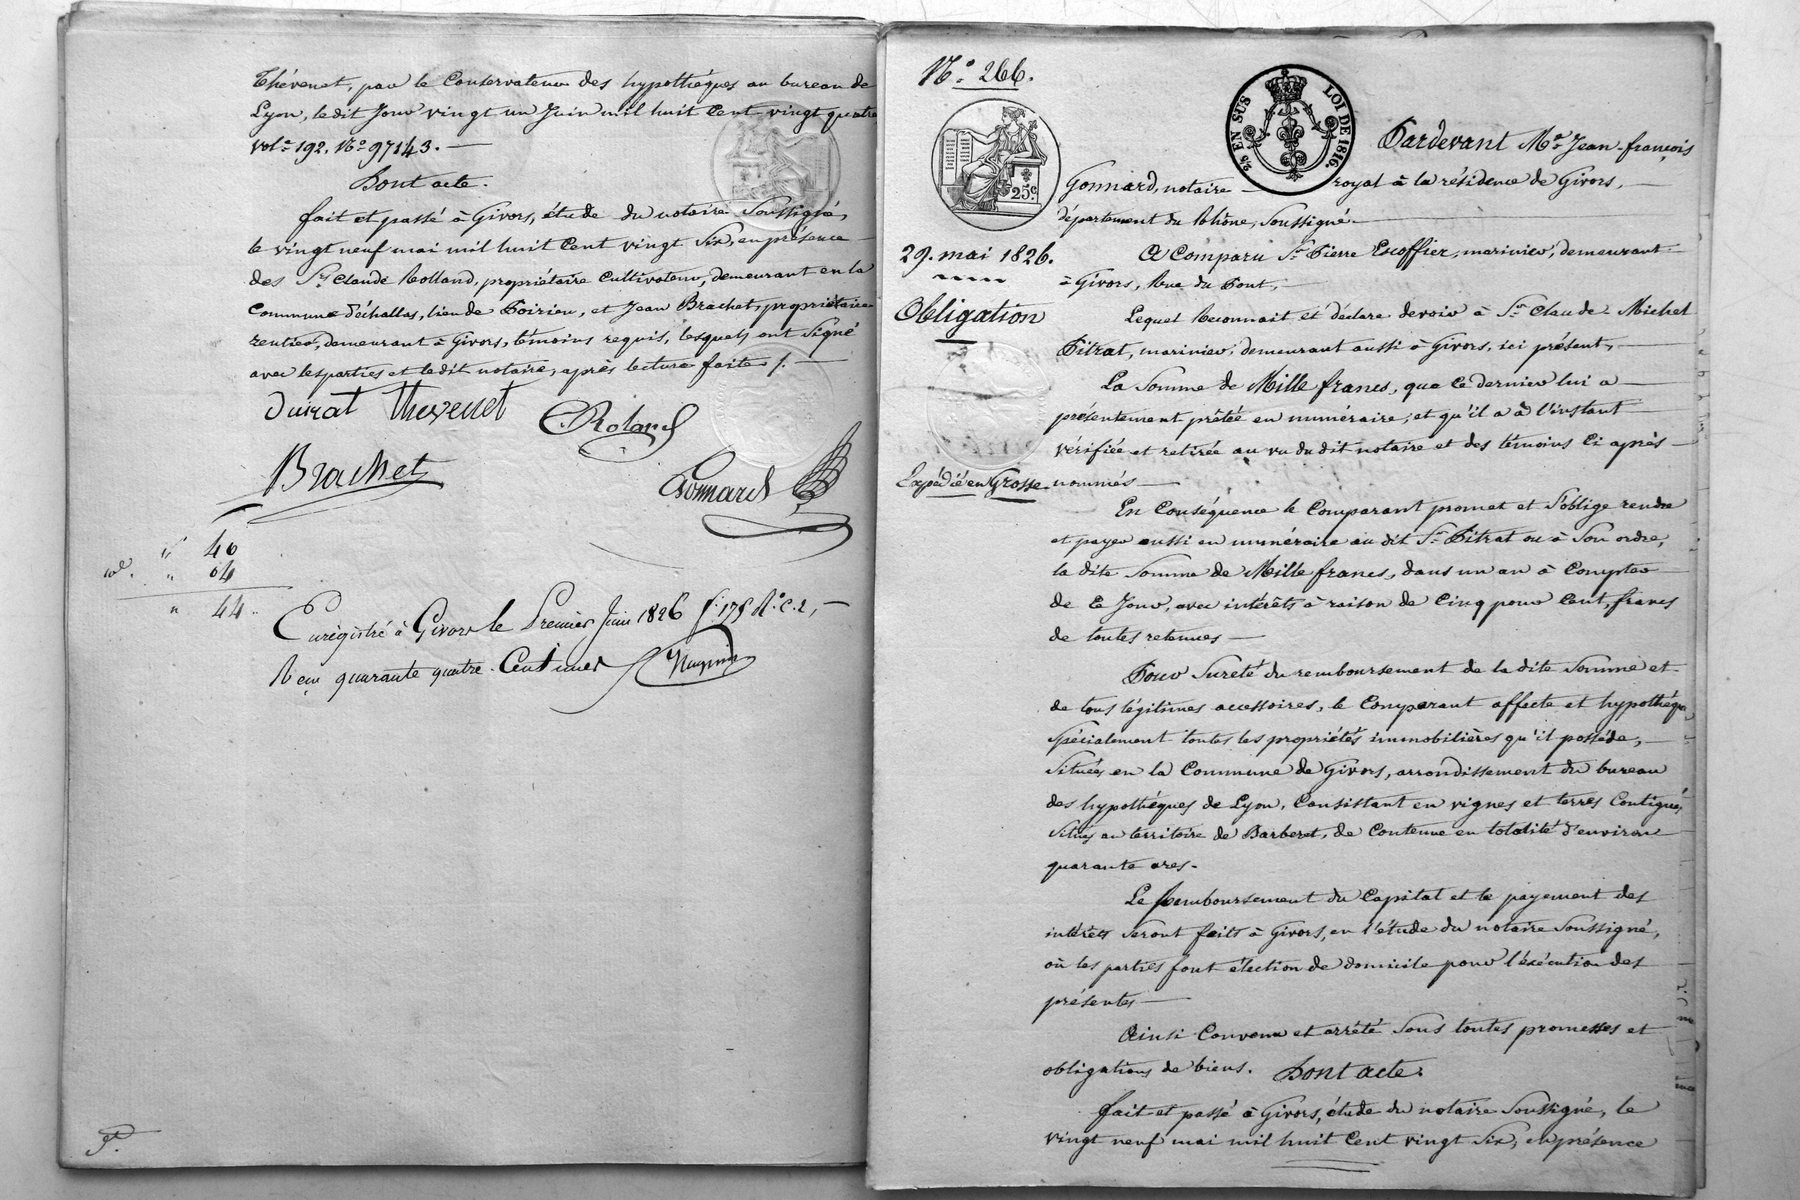 Thévenet, par le Conservateur des hypothéques au bureau de
Lyon, le dit Jour vingt un Juin mil huit Cent vingt quatre
vol.e 192, N.o 97143. —
Dont acte.
fait et passé à Givors, étude du notaire Soussigné,
le vingt neuf mai mil huit Cent vingt Six, en présence
des Srs Claude Rolland, propriétaire Cultivateur, demeurant en la
Commune d'échallas, lieu de Poirieu, et Jean Brachet, propriétaire
rentier, demeurant à Givors, témoins requis, lesquels ont Signé
avec les parties et le dit notaire, après lecture faite /.
Duirat Thevenet
CRoland
Brachet
Gonnard
40
04
44
Enregistré à Givors le Premier Juin 1826 f.o 175 R.o c. 2, —
Reçu quarante quatre Centimes
N.o 266.
25 EN SUS
LOI DE 1816.
25 c.
29. mai 1826.
Obligation
Expédié en Grosse
Pardevant M.e Jean-françois
Gonnard, notaire royal à la résidence de Givors, —
département du Rhône, Soussigné —
A Comparu Sr. Pierre Escoffier, marinier, demeurant
à Givors, Rue du Pont, —
Lequel Reconnait et déclare devoir à Sr. Claude Michel
Pitrat, marinier, demeurant aussi à Givors, ici présent, —
La Somme de Mille francs, que ce dernier lui a —
présentement prêtée en numéraire, et qu'il a à l'instant
vérifiée et retirée au vu du dit notaire et des témoins Ci après —
nommés —
En Conséquence le Comparant promet et S'oblige rendre
et payer aussi en numéraire au dit Sr. Pitrat ou à Son ordre,
la dite Somme de Mille francs, dans un an à Compter
de Ce Jour, avec intérêts à raison de Cinq pour Cent, francs
de toutes retenues —
Pour Sureté du remboursement de la dite Somme et
de tous légitimes accessoires, le Comparant affecte et hypothéque
Spécialement toutes les propriétés immobilières qu'il posséde, —
Situées en la Commune de Givors, arrondissement du bureau
des hypothéques de Lyon, Consistant en vignes et terres Contigues,
Situés au territoire de Barberet, de Contenue en totalité d'environ
quarante ares.
Le Remboursement du Capital et le payement des
intérêts Seront faits à Givors, en l'étude du notaire Soussigné,
où les parties font élection de domicile pour l'éxécution des
présentes —
Ainsi Convenu et arrêté Sous toutes promesses et
obligations de biens. Dont acte.
fait et passé à Givors, étude du notaire Soussigné, le
vingt neuf mai mil huit Cent vingt Six, en présence